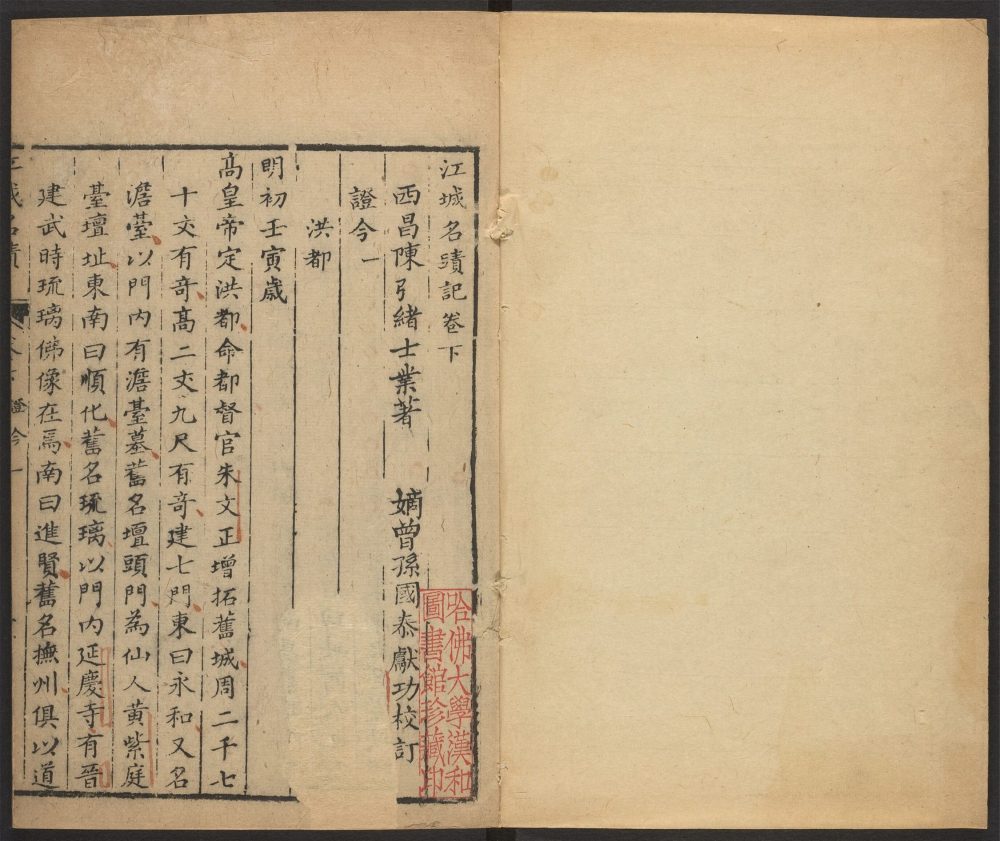 江城名蹟記卷下
西昌陳弓緒士業著　嫡曾孫國泰獻功校訂
證今一
洪都
明初壬寅歲
高皇帝定洪都命都督官朱文正增拓舊城周二千七
十丈有奇高二丈九尺有奇建七門東曰永和又名
澹臺以門內有澹臺墓舊名壇頭門為仙人黃紫庭
臺壇址東南曰順化舊名琉璃以門內延慶寺有晉
建武時琉璃佛像在焉南曰進賢舊名撫州俱以道
證今一
哈佛大學漢和
圖書館珍藏印